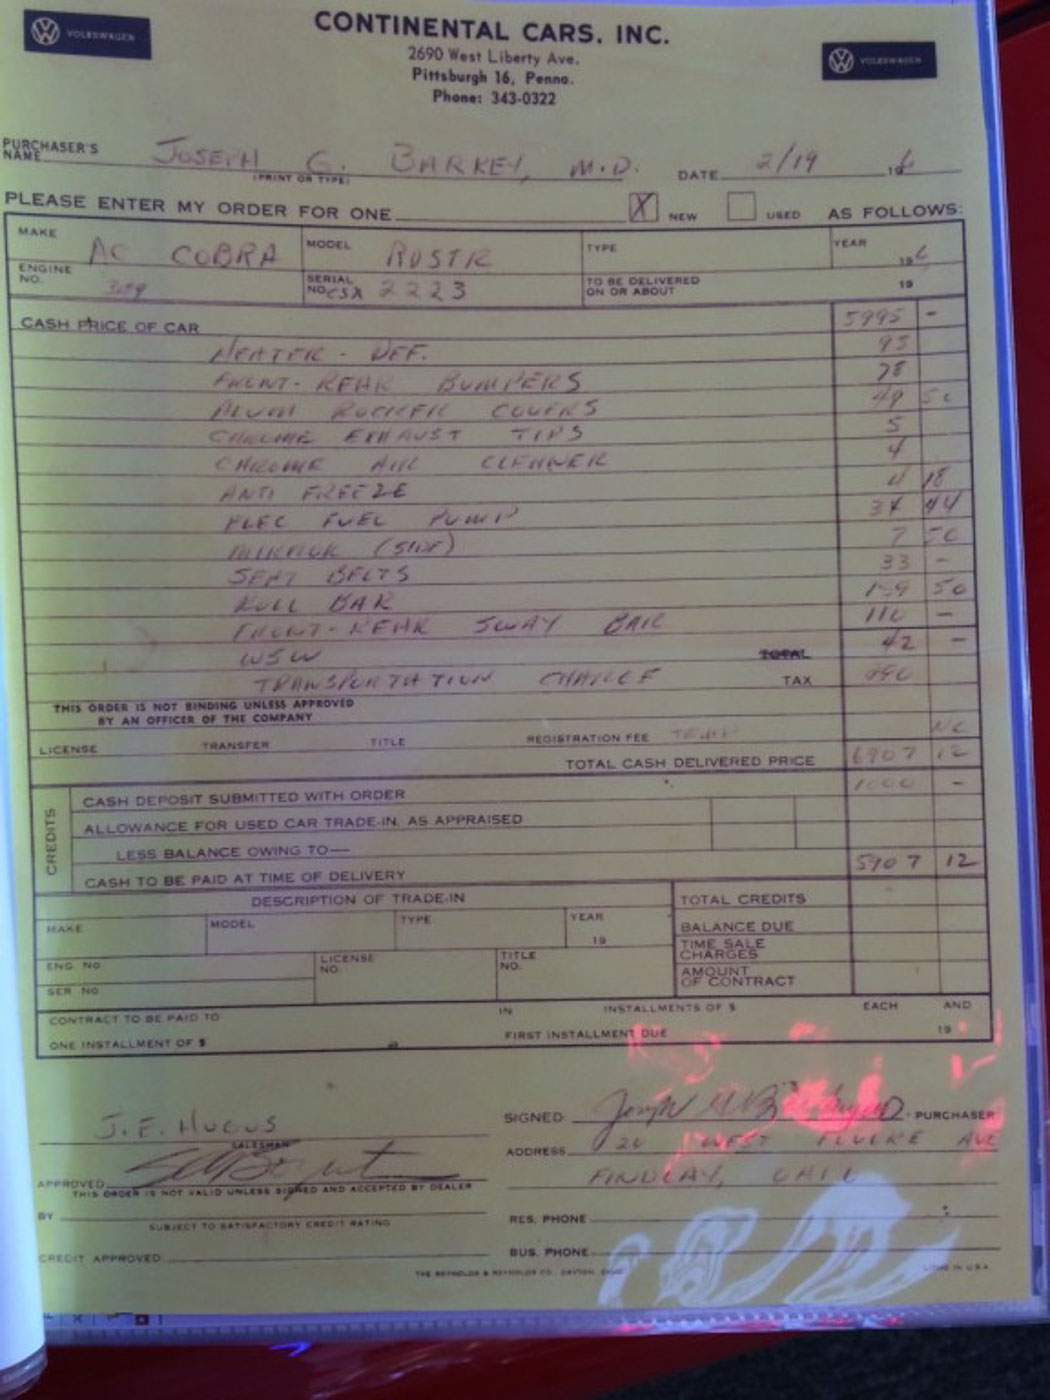 VOLKSWAGEN
CONTINENTAL CARS, INC.
2690 West Liberty Ave.
Pittsburgh 16, Penna.
Phone: 343-0322
VOLKSWAGEN
PURCHASER'S NAME JOSEPH G. BARKEY, M.D. DATE 2/19 196
(PRINT OR TYPE)
PLEASE ENTER MY ORDER FOR ONE X NEW USED AS FOLLOWS:
MAKE AC COBRA MODEL RDSTR TYPE YEAR 196
ENGINE NO. SERIAL NO. CSX 2223 TO BE DELIVERED ON OR ABOUT 19
CASH PRICE OF CAR 5995 -
HEATER - DEF. 95
FRONT - REAR BUMPERS 78
ALUM ROCKER COVERS 49 50
CHROME EXHAUST TIPS 5
CHROME AIR CLEANER 4
ANTI FREEZE 4 18
ELEC FUEL PUMP 34 44
MIRROR (SIDE) 7 50
SEAT BELTS 33 -
ROLL BAR 50
FRONT - REAR SWAY BAR 110 -
WSW TOTAL 42 -
TRANSPORTATION CHARGE TAX
THIS ORDER IS NOT BINDING UNLESS APPROVED
BY AN OFFICER OF THE COMPANY
LICENSE TRANSFER TITLE REGISTRATION FEE TEMP NC
TOTAL CASH DELIVERED PRICE 6907 12
CREDITS
CASH DEPOSIT SUBMITTED WITH ORDER 1000 -
ALLOWANCE FOR USED CAR TRADE-IN, AS APPRAISED
LESS BALANCE OWING TO—
CASH TO BE PAID AT TIME OF DELIVERY 5907 12
DESCRIPTION OF TRADE-IN TOTAL CREDITS
MAKE MODEL TYPE YEAR 19 BALANCE DUE
ENG. NO. LICENSE NO. TITLE NO. TIME SALE CHARGES
SER. NO. AMOUNT OF CONTRACT
CONTRACT TO BE PAID TO IN INSTALLMENTS OF $ EACH AND
ONE INSTALLMENT OF $ FIRST INSTALLMENT DUE 19
J. E. HUGUS
SALESMAN
SIGNED PURCHASER
ADDRESS 20 WEST AVE
APPROVED FINDLAY,
THIS ORDER IS NOT VALID UNLESS SIGNED AND ACCEPTED BY DEALER
BY RES. PHONE
SUBJECT TO SATISFACTORY CREDIT RATING
CREDIT APPROVED BUS. PHONE
THE REYNOLDS & REYNOLDS CO., DAYTON, OHIO LITHO IN U.S.A.